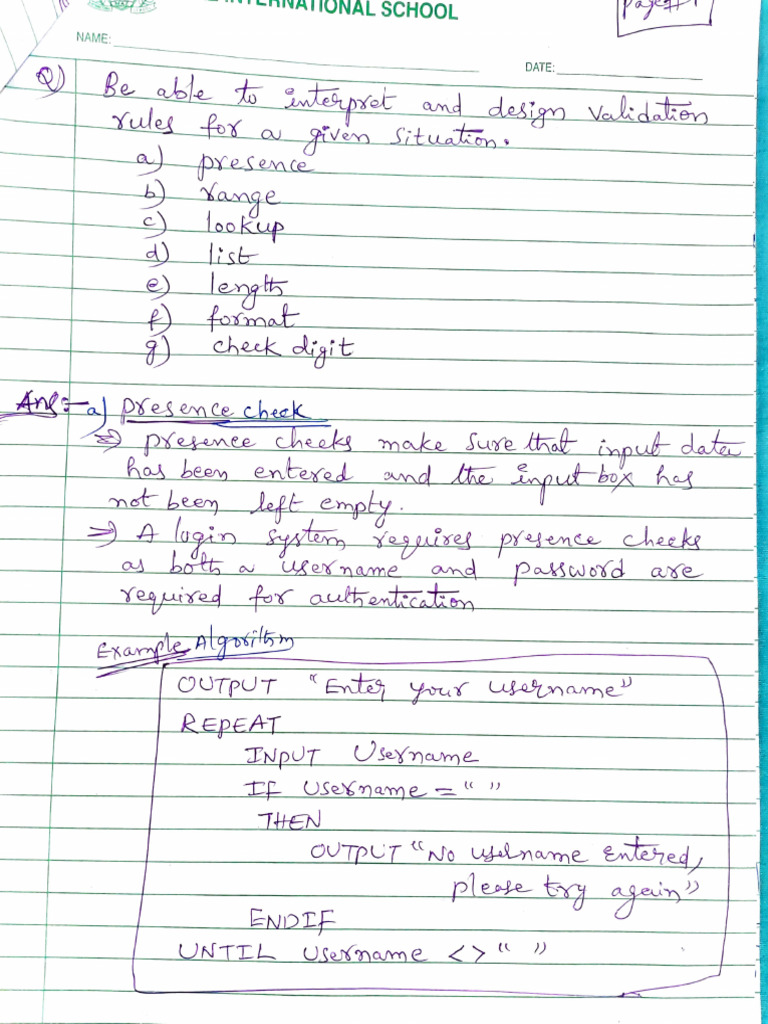 INTERNATIONAL SCHOOL
Page # 1
NAME:
DATE:
Q) Be able to interpret and design validation
rules for a given situation.
a) presence
b) range
c) lookup
d) list
e) length
f) format
g) check digit
Ans:- a) presence check
⇒ presence checks make sure that input data
has been entered and the input box has
not been left empty.
⇒ A login system requires presence checks
as both a username and password are
required for authentication
Example Algorithm
OUTPUT "Enter your username"
REPEAT
INPUT Username
IF Username = " "
THEN
OUTPUT "No username entered,
please try again"
ENDIF
UNTIL Username <> " "